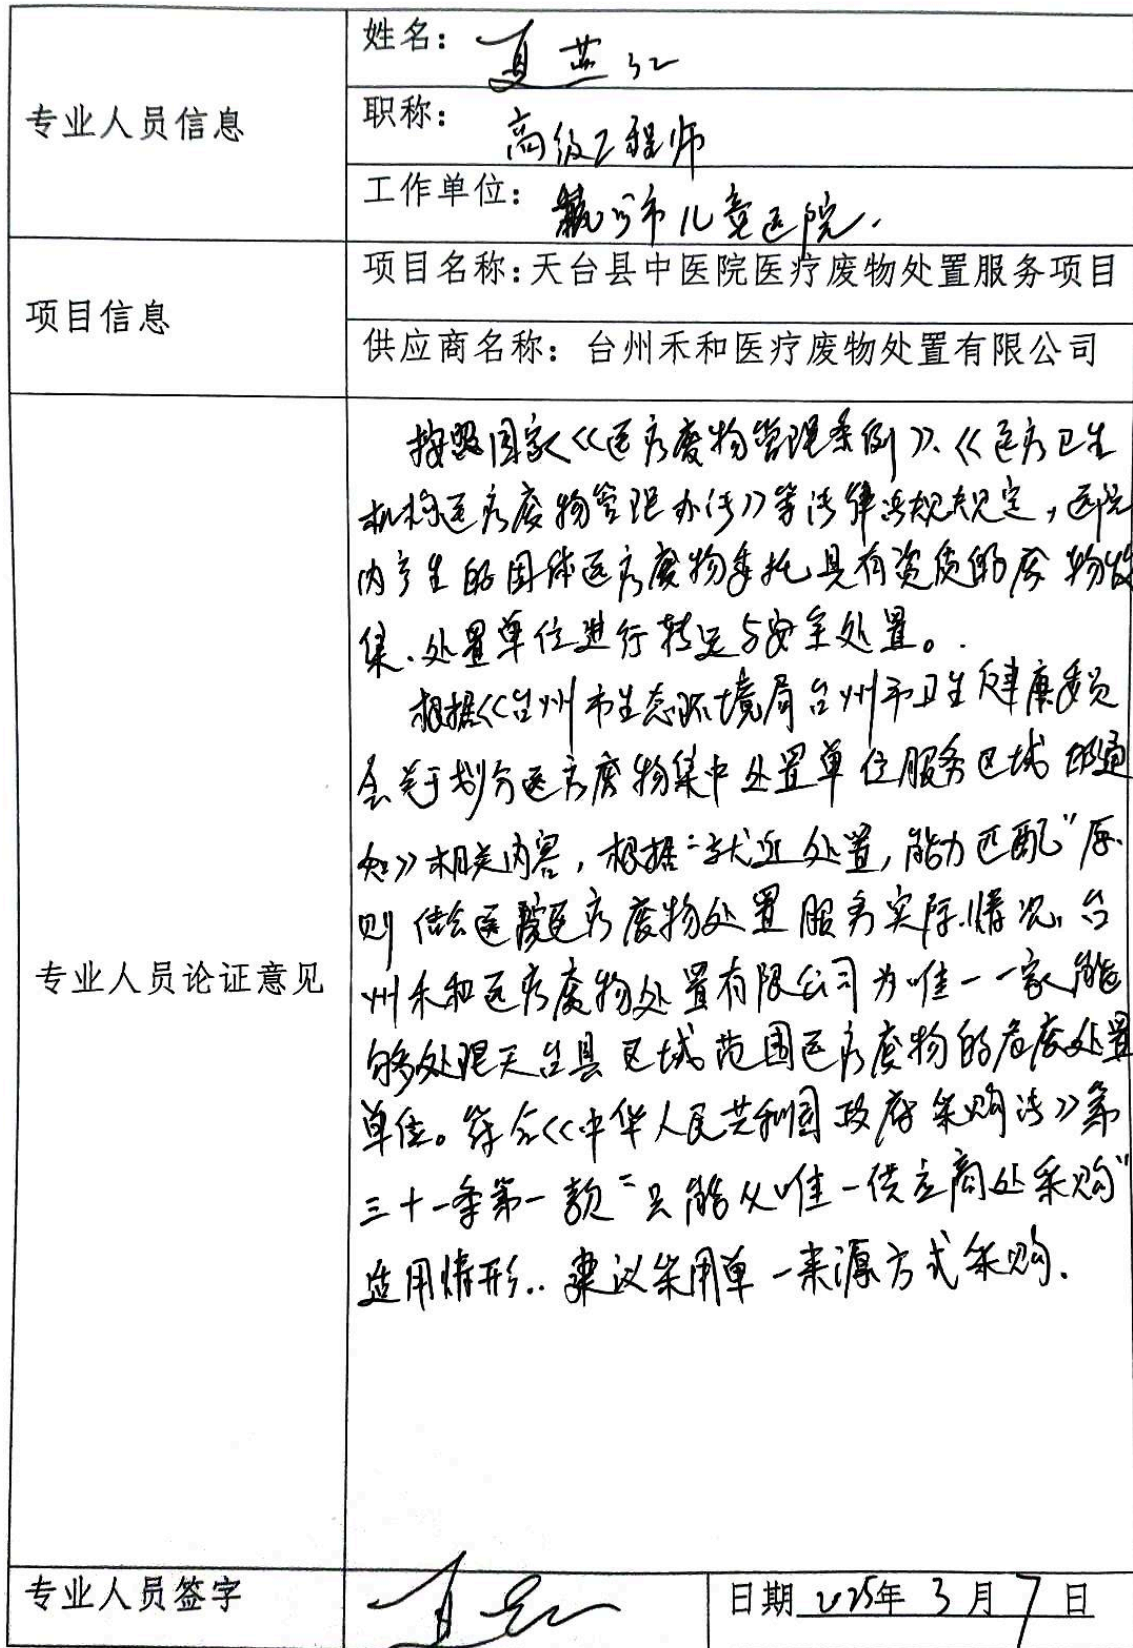 专业人员信息
姓名：夏燕红
职称：高级工程师
工作单位：市儿童医院.
项目信息
项目名称：天台县中医院医疗废物处置服务项目
供应商名称：台州禾和医疗废物处置有限公司
专业人员论证意见
按照国家《医疗废物管理条例》、《医疗卫生
机构医疗废物管理办法》等法律法规规定，医院
内产生的固体医疗废物委托具有资质的废物收
集、处置单位进行转运与安全处置。
根据《台州市生态环境局台州市卫生健康委员
会关于划分医疗废物集中处置单位服务区域的通
知》相关内容，根据“就近处置，能力匹配”原
则 结合医院医疗废物处置服务实际情况，台
州禾和医疗废物处置有限公司为唯一一家能
够处理天台县区域范围医疗废物的危废处置
单位。符合《中华人民共和国政府采购法》第
三十一条第一款“只能从唯一供应商处采购”
适用情形.. 建议采用单一来源方式采购.
专业人员签字
夏红
日期 2025年 3月 7日